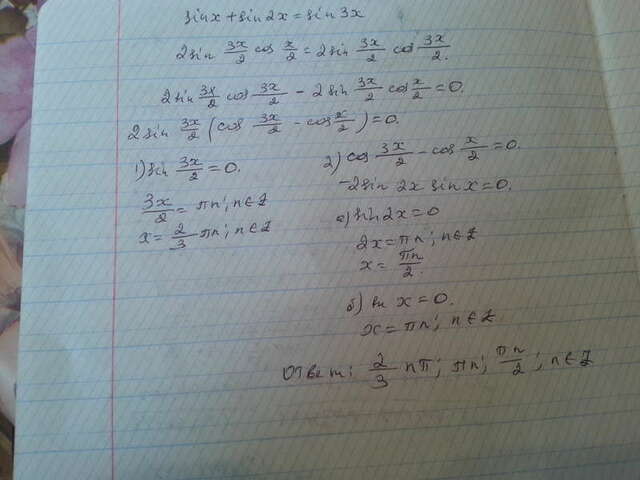 sin x + sin 2x = sin 3x
2 sin 3x/2 cos x/2 = 2 sin 3x/2 cos 3x/2.
2 sin 3x/2 cos 3x/2 - 2 sin 3x/2 cos x/2 = 0.
2 sin 3x/2 (cos 3x/2 - cos x/2) = 0.
1) sin 3x/2 = 0.
3x/2 = πn; n ∈ Z
x = 2/3 πn; n ∈ Z
2) cos 3x/2 - cos x/2 = 0.
-2 sin 2x sin x = 0.
а) sin 2x = 0
2x = πn; n ∈ Z
x = πn/2.
б) sin x = 0.
x = πn; n ∈ Z.
Ответ: 2/3 nπ; πn; πn/2; n ∈ Z